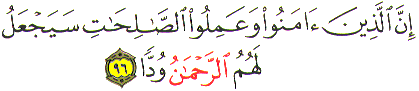 إِنَّ ٱلَّذِينَ ءَامَنُوا۟ وَعَمِلُوا۟ ٱلصَّـٰلِحَـٰتِ سَيَجْعَلُ
لَهُمُ ٱلرَّحْمَـٰنُ وُدًّا ٩٦